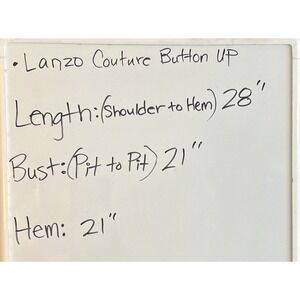 • Lanzo Couture Button UP
Length:(Shoulder to Hem) 28"
Bust:(Pit to Pit) 21"
Hem: 21"